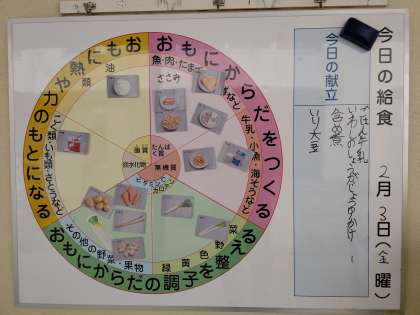 今日の給食
2月3日(金曜)
今日の献立
ごはん 牛乳
いわしのしょうがじょうゆかけ
含め煮
いり大豆
おもにからだをつくる
魚・肉・たまご
牛乳・小魚・海そうなど
おもに熱や
力のもとになる
油
類
こく類・いも類・さとうなど
おもにからだの調子を整える
緑黄色野菜
その他の野菜・果物
脂質
たんぱく質
炭水化物
無機質
ビタミン